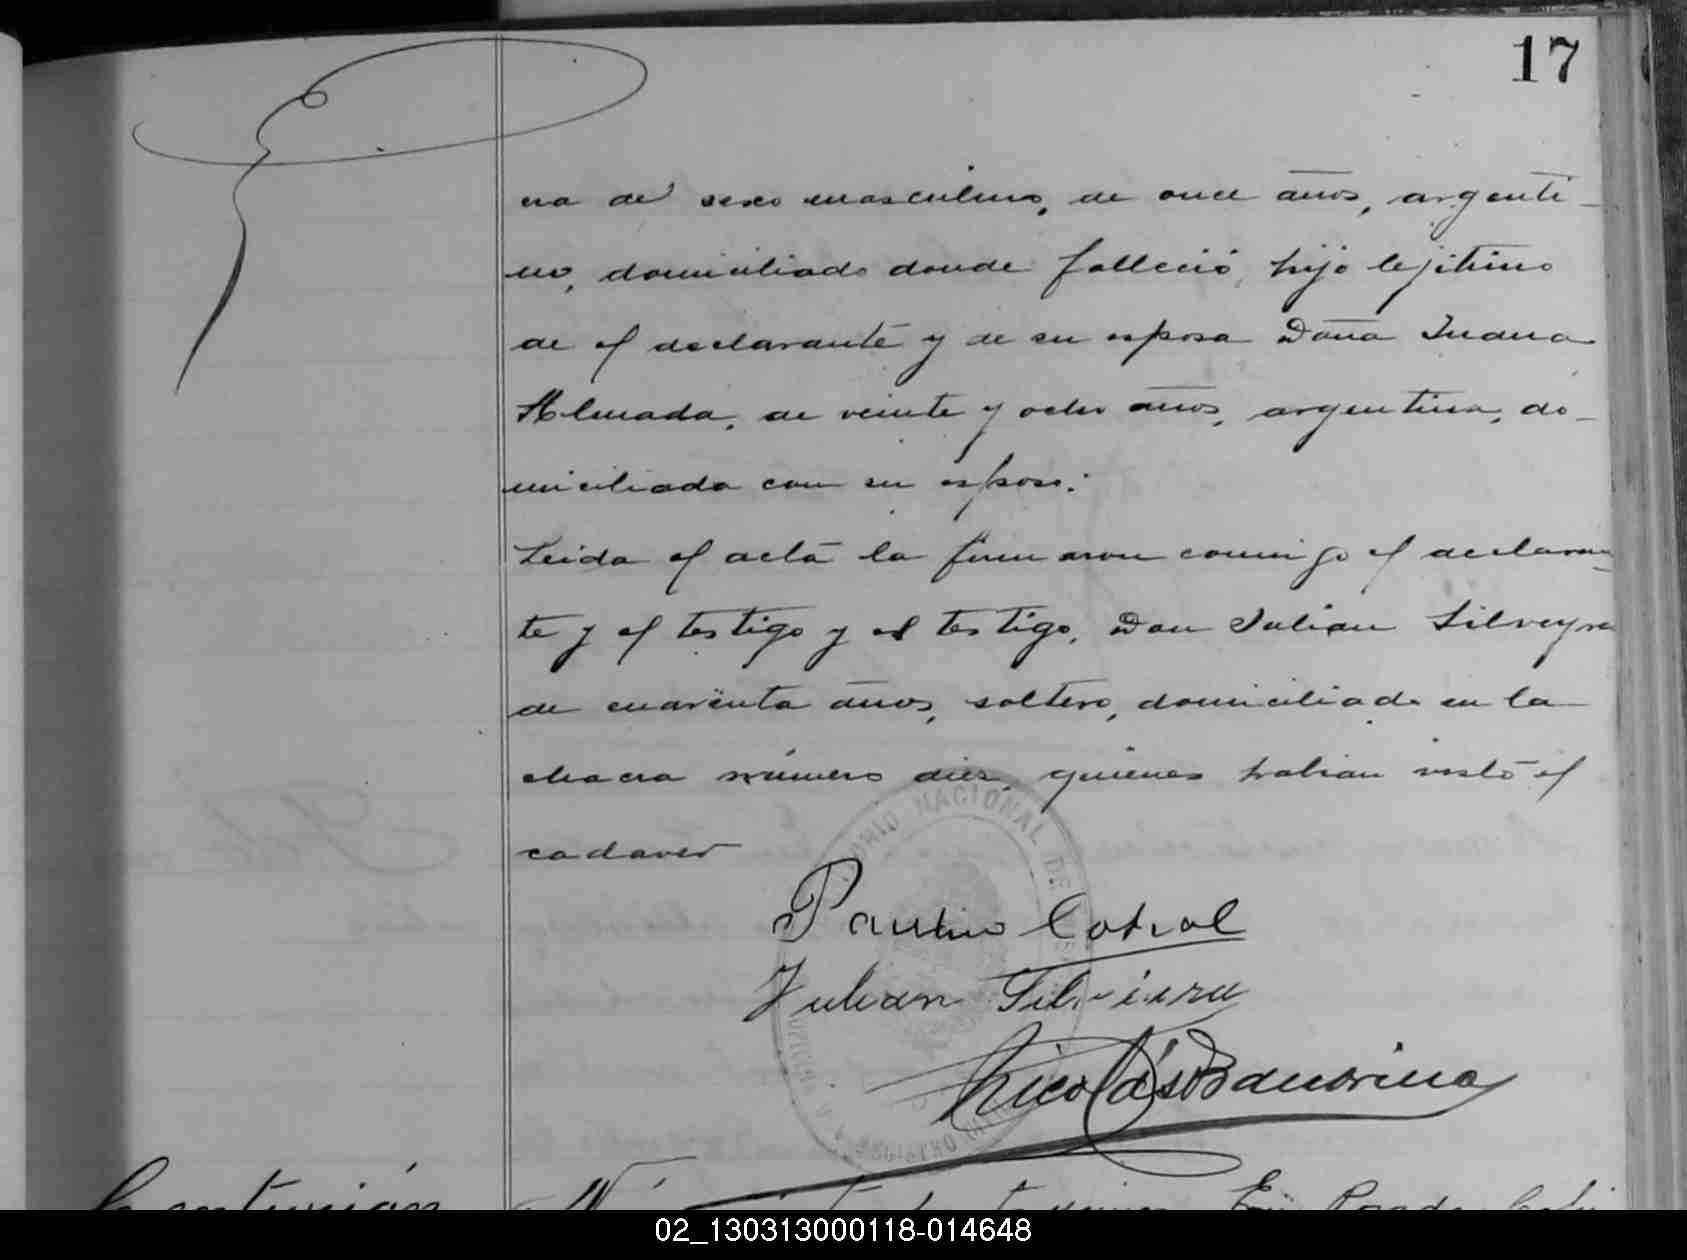 17
era de sexo masculino, de once años, argenti-
no, domiciliado donde falleció, hijo lejitimo
de el declarante y de su esposa Doña Juana
Almada, de veinte y ocho años, argentina, do-
miciliada con su esposo.
Leida el acta la firmaron conmigo el declaran-
te y el testigo y el testigo, Don Julian Silveyra
de cuarenta años, soltero, domiciliado en la
chacra número diez, quienes habian visto el
cadaver
NACIONAL DE
Paulino Cabral
Julian Silveira
Nicolás
02_130313000118-014648